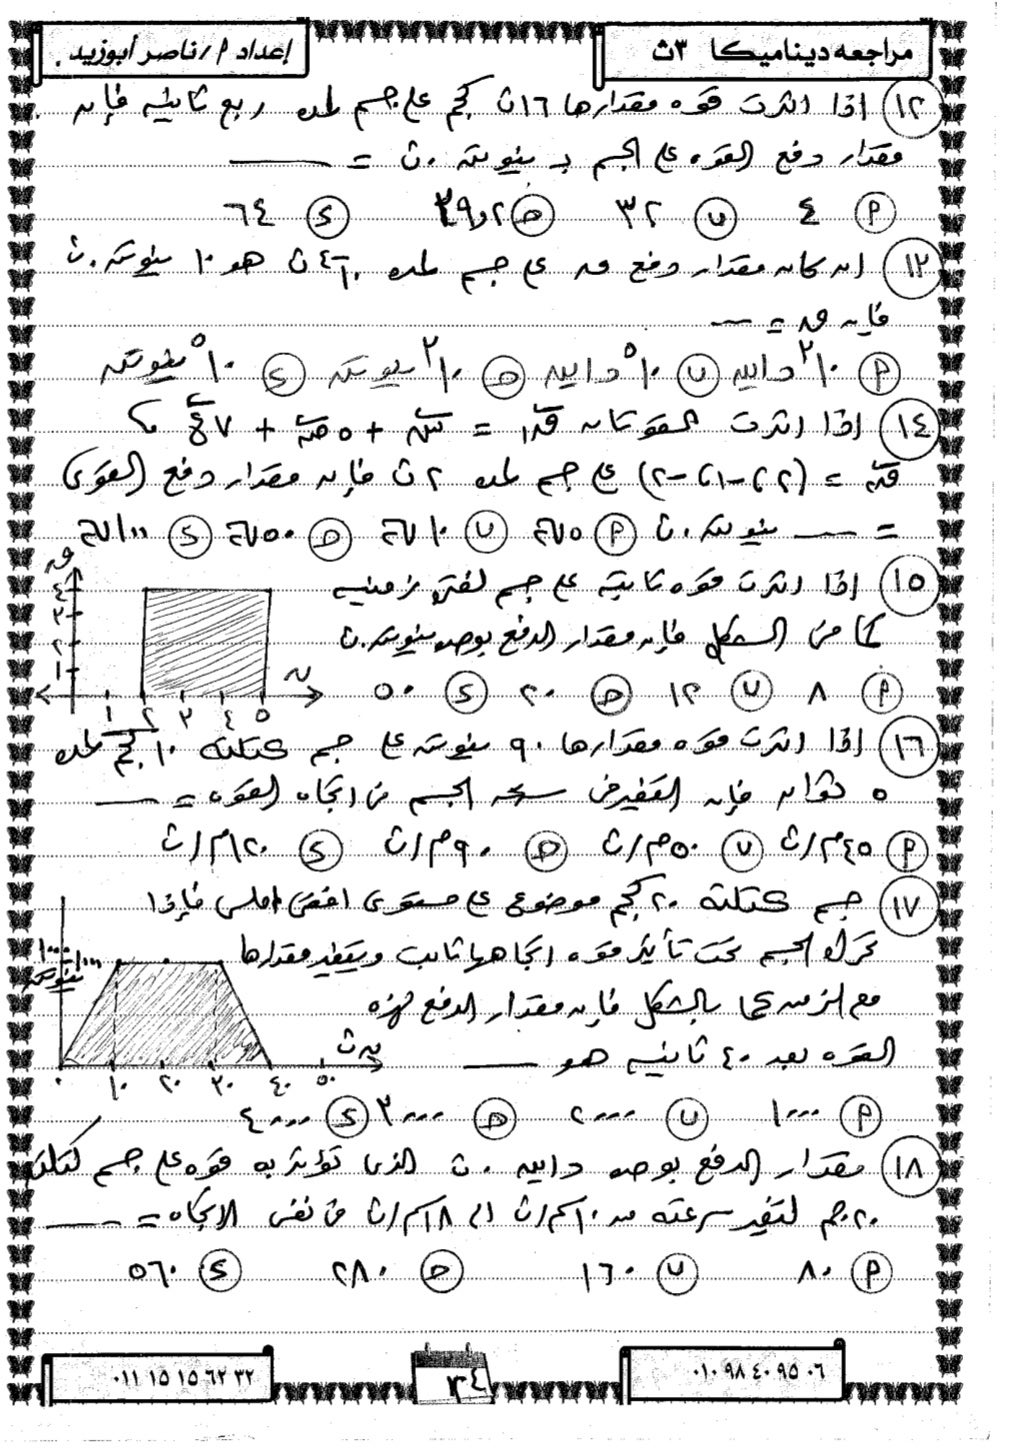 مراجعه ديناميكا ٣ث
إعداد م/ناصر أبوزيد.
١٢ اذا اثرت قوه مقدارها ١٦ ث كجم على جسم لمده ربع ثانيه فإن
مقدار دفع القوه على الجسم بـ نيوتن.ث = ــــ
أ ٤ ب ٣٢ حـ ٣٩,٢ د ٦٤
١٣ ان كان مقدار دفع ق على جسم لمده ١٠⁻⁴ ث هو ١٠ نيوتن.ث
فإن ق = ــ
أ ١٠² داين ب ١٠⁵ داين حـ ١٠² نيوتن د ١٠⁵ نيوتن
١٤ اذا اثرت القوتان ق١ = س + ٥ ص + ٧ ع ،
ق٢ = (٢، -١، -٢) على جسم لمده ٢ ث فإن مقدار دفع القوى
= ــ نيوتن.ث أ ٥√٢ ب ١٠√٢ حـ ٥٠√٢ د ١٠٠√٢
١٥ اذا اثرت قوه ثابته على جسم لفتره زمنيه
كما فى الشكل فإن مقدار الدفع بوحده نيوتن.ث
أ ٨ ب ١٢ حـ ٢٠ د ٥٠
ق
٤
٣
٢
١
ن
١ ٢ ٣ ٤ ٥
١٦ اذا اثرت قوه مقدارها ٩٠ نيوتن على جسم كتلته ١٠ كجم لمده
٥ ثوان فإن التغير فى سرعه الجسم فى اتجاه القوه = ــ
أ ٤٥ م/ث ب ٥٠ م/ث حـ ٩٠ م/ث د ١٢٠ م/ث
١٧ جسم كتلته ٢٠ كجم موضوع على مستوى افقى املس فإذا
تحرك الجسم تحت تأثير قوه اتجاهها ثابت ويتغير مقدارها
مع الزمن كما بالشكل فإن مقدار الدفع لهذه
القوه بعد ٤٠ ثانيه هو ــ
١٠٠٠
نيوتن
ن ث
٠ ١٠ ٢٠ ٣٠ ٤٠ ٥٠
أ ١٠٠٠٠ ب ٢٠٠٠٠ حـ ٣٠٠٠٠ د ٤٠٠٠٠
١٨ مقدار الدفع بوحده داين.ث الذى تؤثر به قوه على جسم كتلته
٢٠ جم لتغير سرعته من ١٠ سم/ث الى ١٨ سم/ث فى نفس الاتجاه = ــ
أ ٨٠ ب ١٦٠ حـ ٢٨٠ د ٥٦٠
٠١٠٩٨٤٠٩٥٠٦
٣٤
٠١١١٥١٥٦٢٣٢